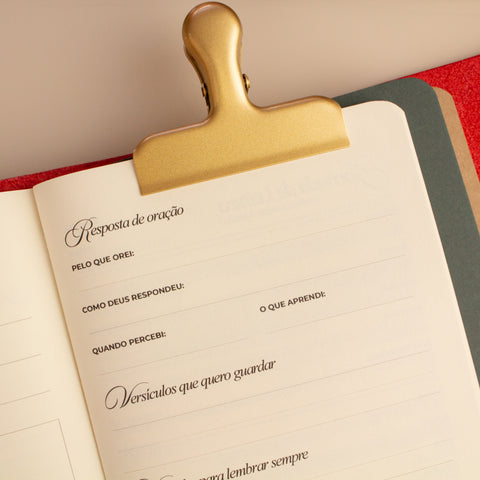 Resposta de oração
PELO QUE OREI:
COMO DEUS RESPONDEU:
QUANDO PERCEBI:
O QUE APRENDI:
Versículos que quero guardar
para lembrar sempre